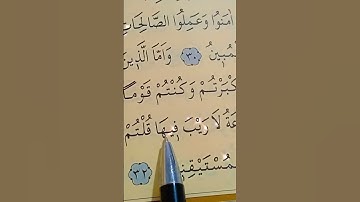 اٰمَنُوا وَعَمِلُوا الصَّالِحَاتِ
لْمُبِينُ ﴿٣٠﴾ وَاَمَّا الَّذِينَ
كْبَرْتُمْ وَكُنْتُمْ قَوْماً
عَةُ لَا رَيْبَ فِيهَا قُلْتُمْ
بِمُسْتَيْقِنِ ﴿٣٢﴾